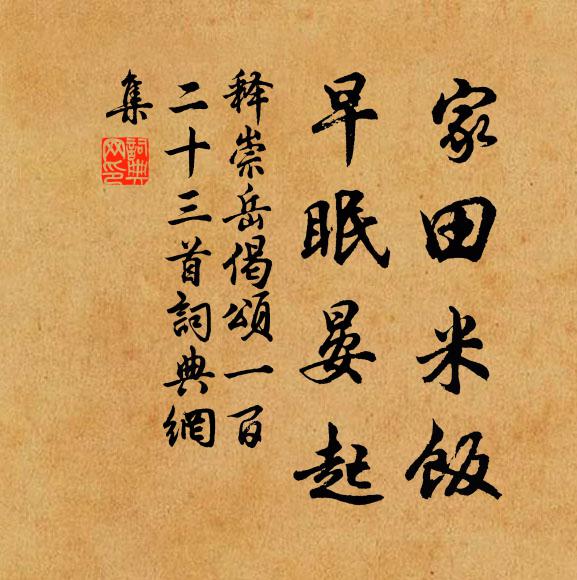 家田米飯
早眠晏起
释崇岳偈頌一百
二十三首詞典網
集
詞典網印